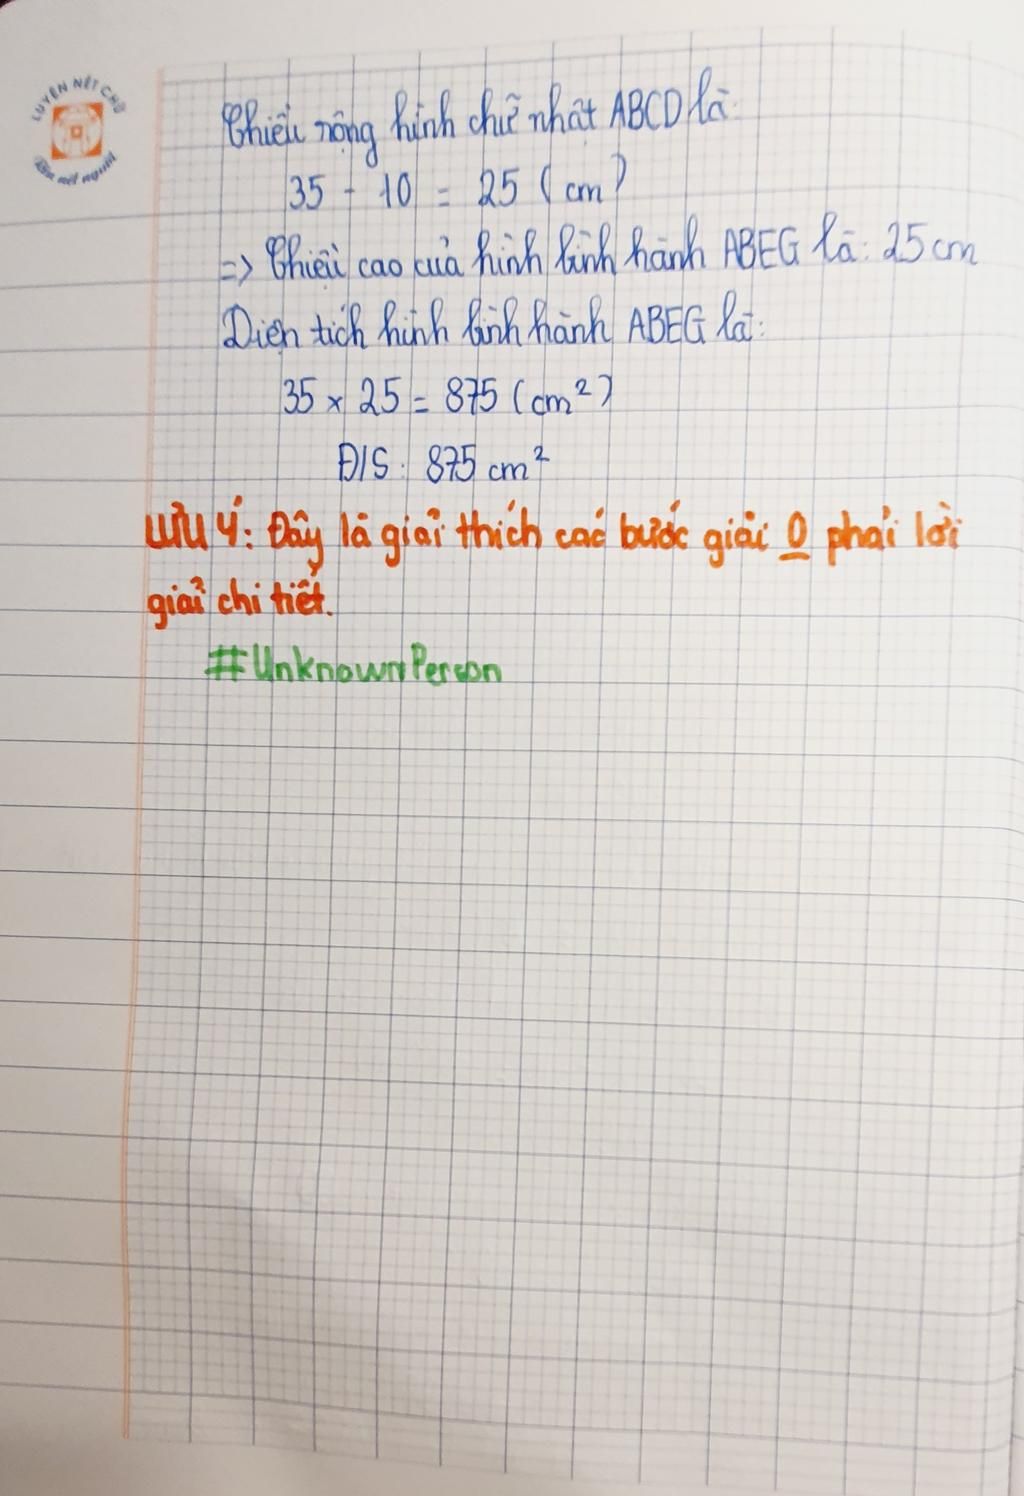 LUYỆN NÉT CHỮ
Rèn nết người
Chiều rộng hình chữ nhật ABCD là:
35 - 10 = 25 (cm)
=> Chiều cao của hình bình hành ABEG là: 25 cm
Diện tích hình bình hành ABEG là:
35 x 25 = 875 (cm²)
Đ/S: 875 cm²
LƯU Ý: Đây là giải thích các bước giải 0 phải lời
giải chi tiết.
#UnknownPerson